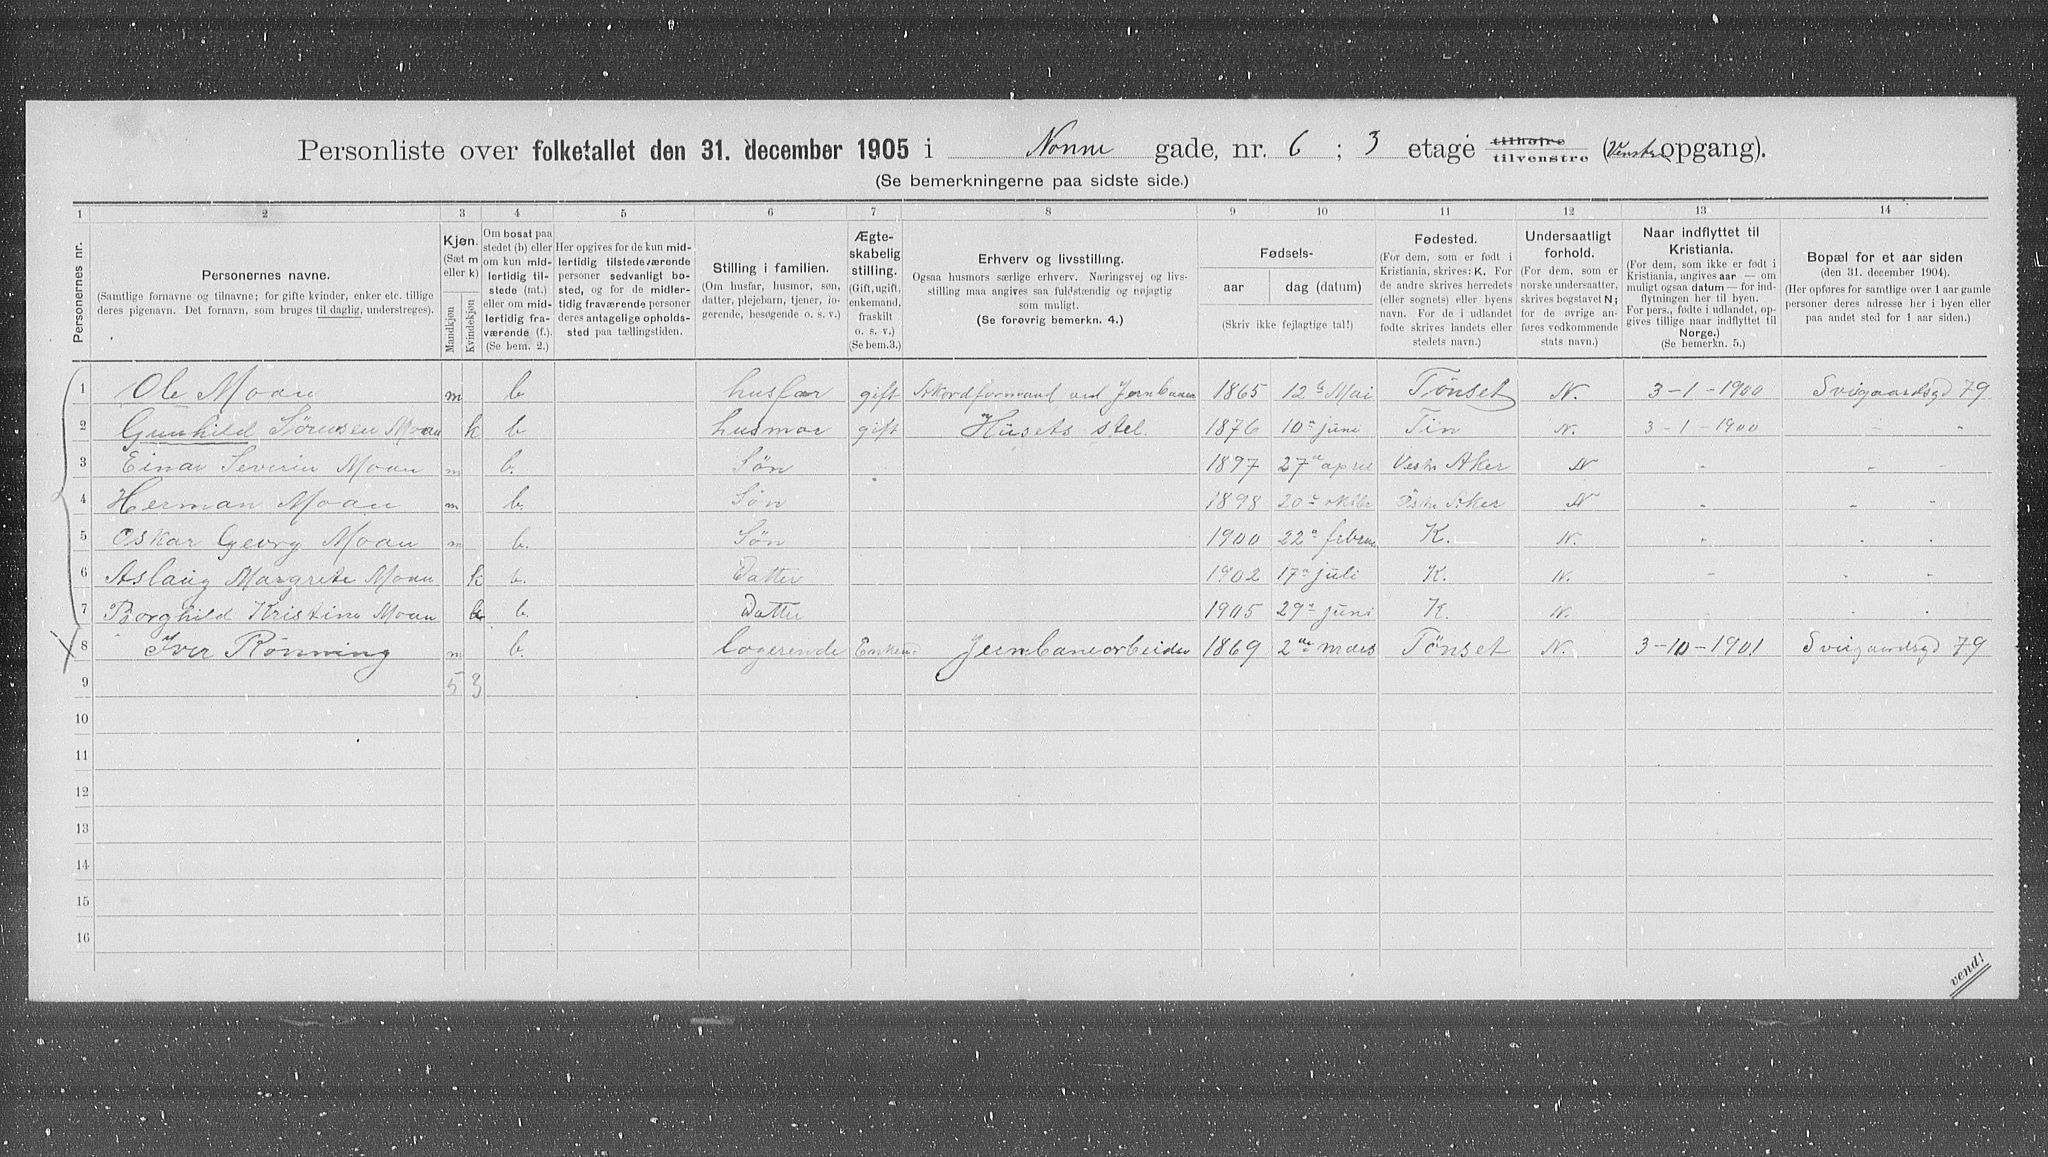 Personliste over folketallet den 31. december 1905 i Nonne gade, nr. 6 ; 3 etage tilhøjre tilvenstre (Venstre opgang).
(Se bemerkningerne paa sidste side.)
1 2 3 4 5 6 7 8 9 10 11 12 13 14
Personernes nr.
Personernes navne.
(Samtlige fornavne og tilnavne; for gifte kvinder, enker etc. tillige
deres pigenavn. Det fornavn, som bruges til daglig, understreges).
Kjøn.
(Sæt m
eller k)
Mandkjøn
Kvindekjøn
Om bosat paa
stedet (b) eller
om kun mid-
lertidig til-
stede (mt.)
eller om mid-
lertidig fra-
værende (f.).
(Se bem. 2.)
Her opgives for de kun mid-
lertidig tilstedeværende
personer sedvanligt bo-
sted, og for de midler-
tidig fraværende personer
deres antagelige opholds-
sted paa tællingstiden.
Stilling i familien.
(Om husfar, husmor, søn,
datter, plejebarn, tjener, lo-
gerende, besøgende o. s. v.)
Ægte-
skabelig
stilling.
(Gift, ugift,
enkemand,
fraskilt
o. s. v.)
(Se bem.3.)
Erhverv og livsstilling.
Ogsaa husmors særlige erhverv. Næringsvej og livs-
stilling maa angives saa fuldstændig og nøjagtig
som muligt.
(Se forøvrig bemerkn. 4.)
Fødsels-
aar dag (datum)
(Skriv ikke fejlagtige tal!)
Fødested.
(For dem, som er født i
Kristiania, skrives: K. For
de andre skrives herredets
(eller sognets) eller byens
navn. For de i udlandet
fødte skrives landets eller
stedets navn.)
Undersaatligt
forhold.
(For dem, som er
norske undersaatter,
skrives bogstavet N;
for de øvrige an-
føres vedkommende
stats navn.)
Naar indflyttet til
Kristiania.
(For dem, som ikke er født i
Kristiania, angives aar — om
muligt ogsaa datum — for ind-
flytningen her til byen.
For pers., fødte i udlandet, op-
gives tillige naar indflyttet til
Norge.)
(Se bemerkn. 5.)
Bopæl for et aar siden
(den 31. december 1904).
(Her opføres for samtlige over 1 aar gamle
personer deres adresse her i byen eller
paa andet sted for 1 aar siden.)
1 Ole Moan m b husfar gift Akordformand ved Jernbanen 1865 12te Mai Tönset N. 3-1-1900 Svigaardsgd 79
2 Gunhild Sörensen Moan k b husmor gift Húsets stel. 1876 10n juni Tin N. 3-1-1900 " "
3 Einar Severin Moan m b. Søn 1897 27n april Vestre Aker N " "
4 Herman Moan m b. Søn 1898 20n Aker N " "
5 Oskar Georg Moan m b. Søn 1900 22n K. N. " "
6 Aslaug Margrete Moan k b. Datter 1902 17n juli K. N. " "
7 Borghild Kristine Moan k b. Datter 1905 29n juni K. N. " "
8 Iver Rönning m b. logerende Enkem Jernbanearbeider 1869 2den mars Tönset N. 3-10-1901 Svigaardsgd 79
9 5 3
10
11
12
13
14
15
16
vend!